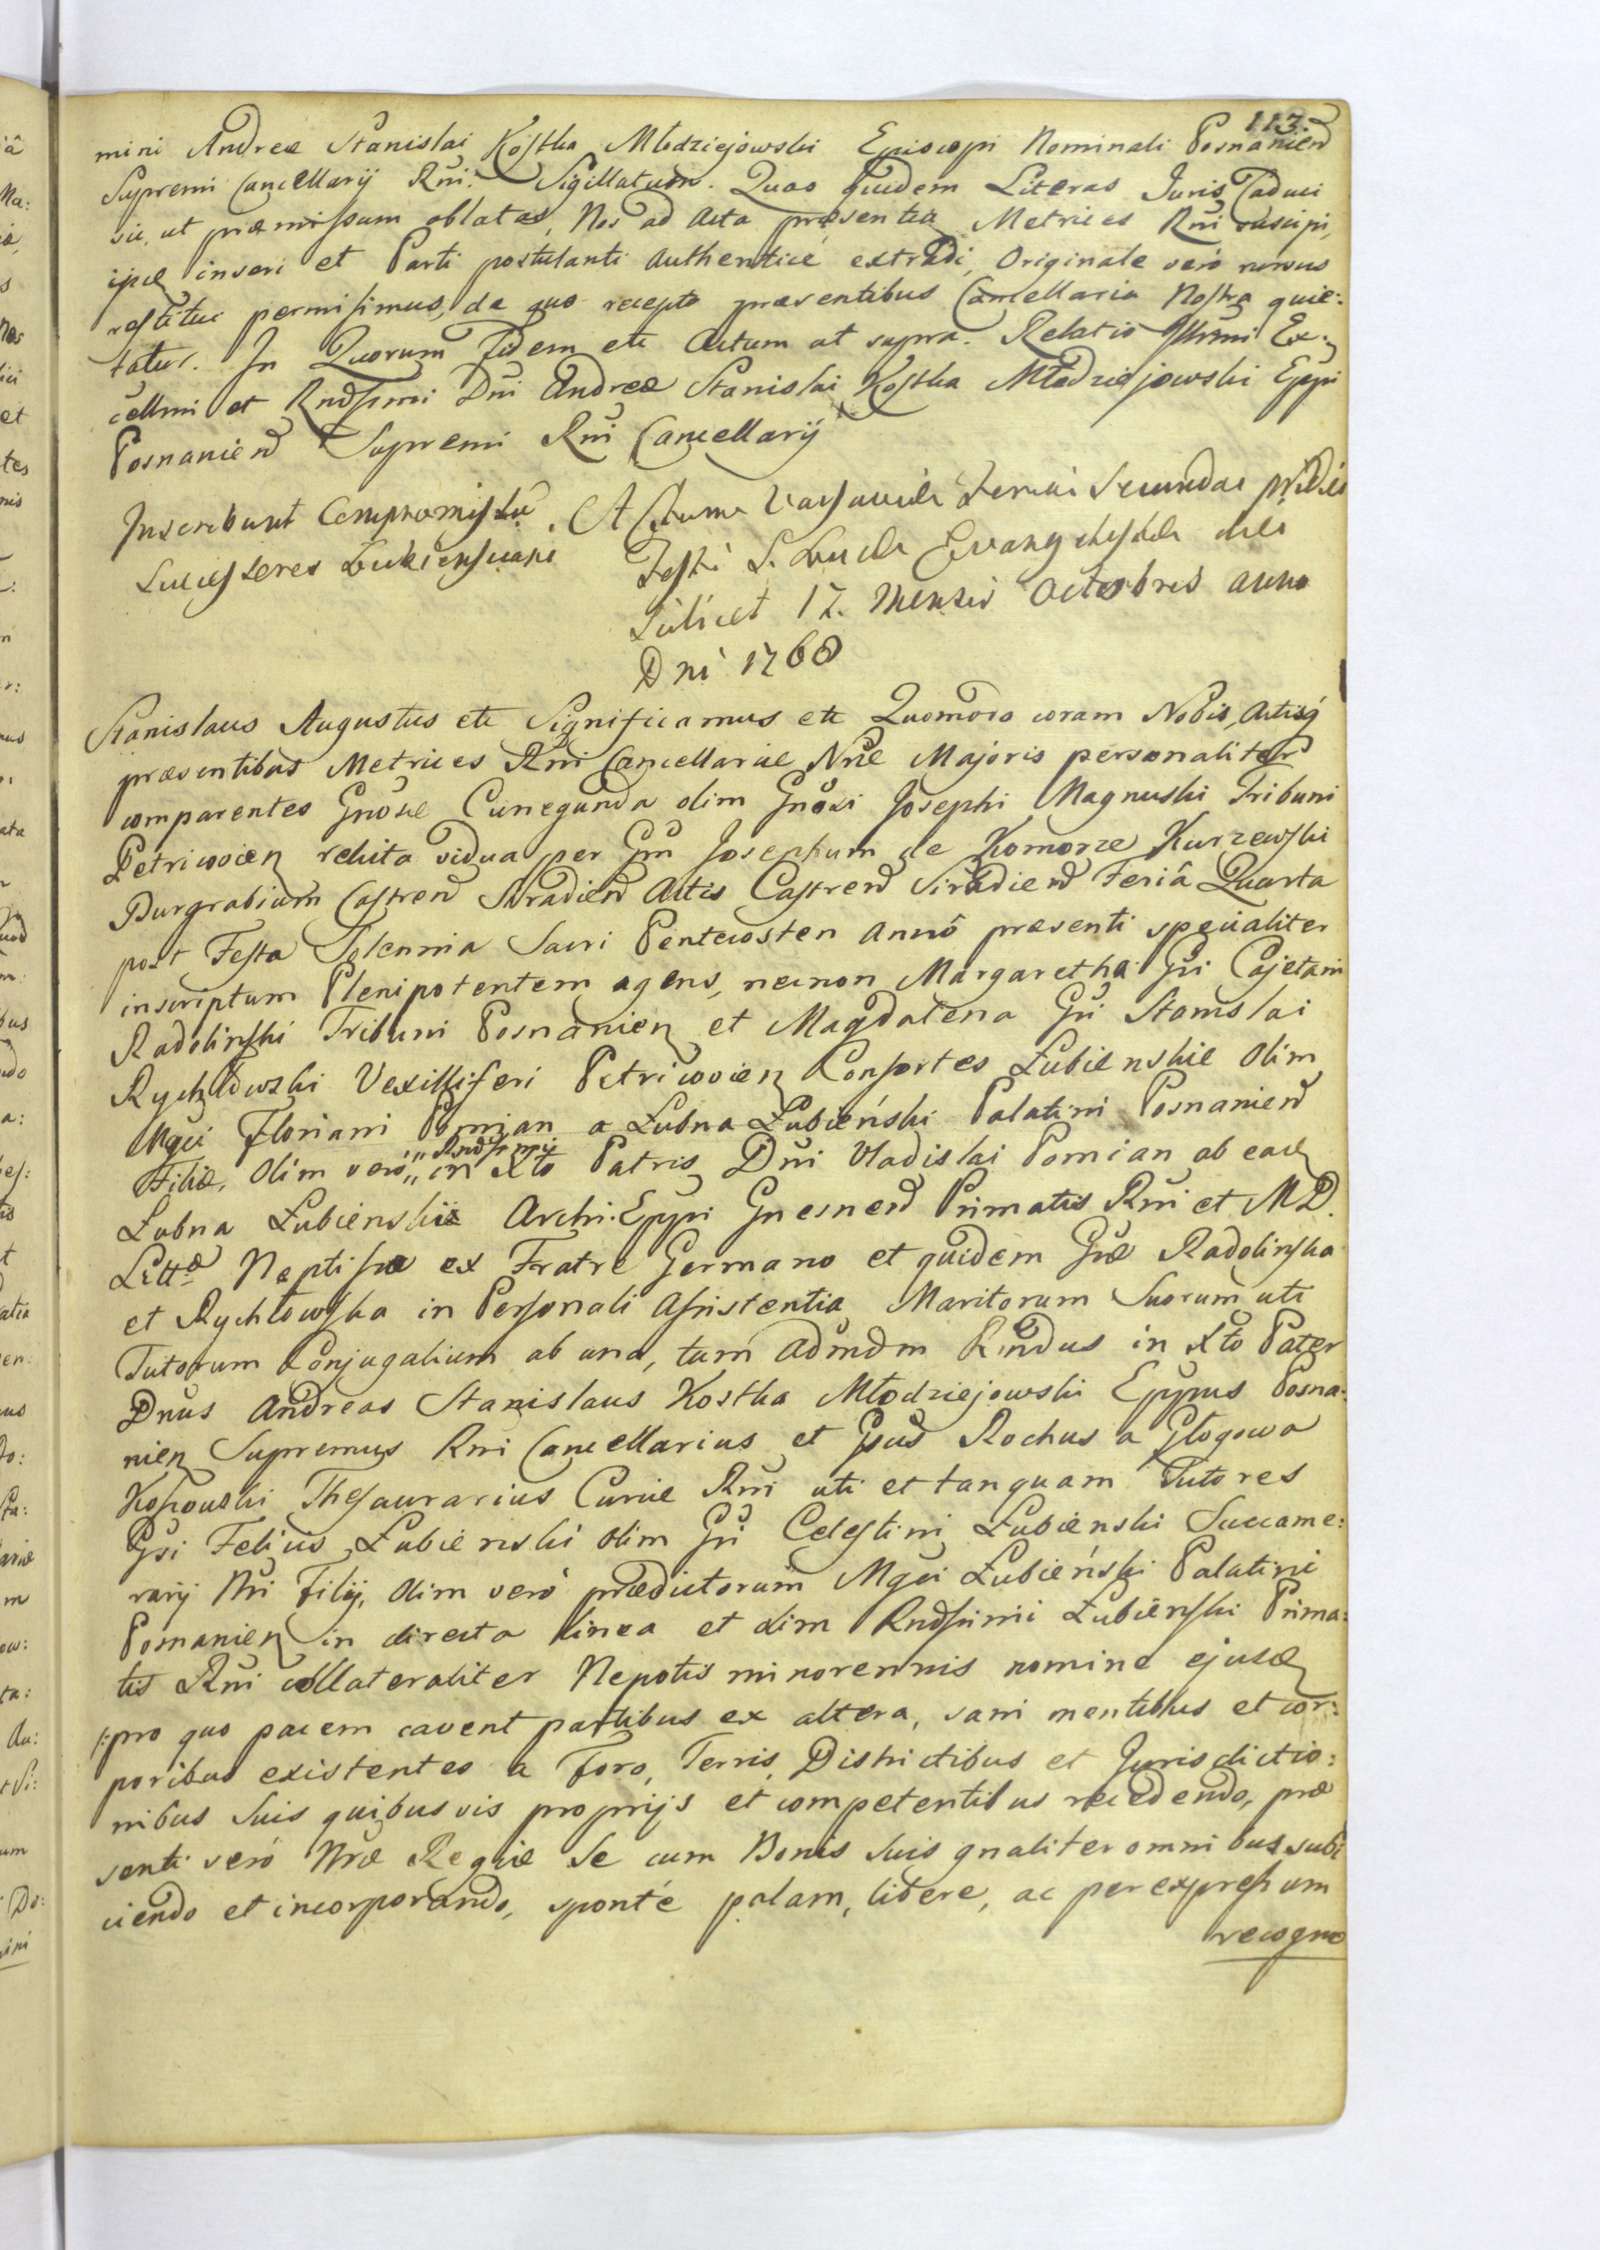 113.
mini Andreæ Stanislai Kostka Młodziejowski Episcopi Nominati Posnanien
Supremi Cancellarij Rni. Sigillatum. Quas quidem Literas Juris Caduci
sic, ut præmissum oblatas, Nos ad Acta præsentia Metrices Rni suscipi,
ipsæ inseri et Parti postulanti Authenticé extradi, Originale veró rursus
restitui permisimus, de quo recepto præsentibus Cancellaria Nostra quie:
tatur. In Quorum Fidem etc Actum ut supra. Relatio Illrmi Ex:
cellmi et Rndssmi Dni Andreæ Stanislai Kostka Młodziejowski Eppi
Posnanien Supremi Rni Cancellarij
Inscribunt Compromissu. Actum Varsaviæ Feria Secunda pridie
Successores Lubiensciani Festi S. Lucæ Evangelistæ die
Scilicet 17. Mensis Octobris anno
Dni 1768
Stanislaus Augustus etc Significamus etc Quomodo coram Nobis, Actisq
præsentibus Metrices Rni Cancellariæ Nræ Majoris personaliter
comparentes Gnosæ Cunegunda olim Gnosi Josephi Magnuski Tribuni
Petricovien relicta vidua per Gm Josephum de Komorze Kurzewski
Burgrabium Castren Siradien Actis Castren Siradien Feriâ Quarta
post Festa Solennia Sacri Pentecosten Annô præsenti specialiter
inscriptum Plenipotentem agens, necnon Margaretha Gsi Cajetani
Radolinski Tribuni Posnanien et Magdalena Gsi Stanislai
Rychłowski Vexilliferi Petricovien Consortes Łubienskie Olim
Mgci Floriani Pomian a Łubna Łubieński Palatini Posnanien
Filiæ, Olim veró „Rndssmi„ in Xto Patris Dni Vladislai Pomian ab eade
Łubna Łubienski Archi-Eppi Gnesnen Primatis Rni et M.D.
Litt:æ Neptisæ ex Fratre Germano et quidem Gsæ Radolinska
et Rychłowska in Personali Assistentia Maritorum Suorum uti
Tutorum Conjugalium ab una, tum Admdm Rndus in Xto Pater
Dnus Andreas Stanislaus Kostka Młodziejowski Eppus Posna:
nien Supremus Rni Cancellarius et Gsus Rochus a Głogowa
Kossowski Thesaurarius Curiæ Rni uti et tanquam Tutores
Gsi Felicis Łubienski olim Gsi Celestini Łubienski Succame:
rarij Nri Filij, Olim veró prædictorum Mgci Łubieński Palatini
Posnanien in directa linea et olim Rndssimi Łubienski Prima:
tis Rni collateraliter Nepotis minorennis nomine ejusd
/:pro quo pacem cavent partibus ex altera, sani mentibus et cor:
poribus existentes a Foro, Terris, Districtibus et Jurisdictio:
nibus Suis quibusvis proprijs et competentibus recedendo, præ
senti veró Nræ Regiæ Se cum Bonis Suis gnaliter omnibus subi
ciendo et incorporando, sponté palam, libere, ac per expressum
recogno